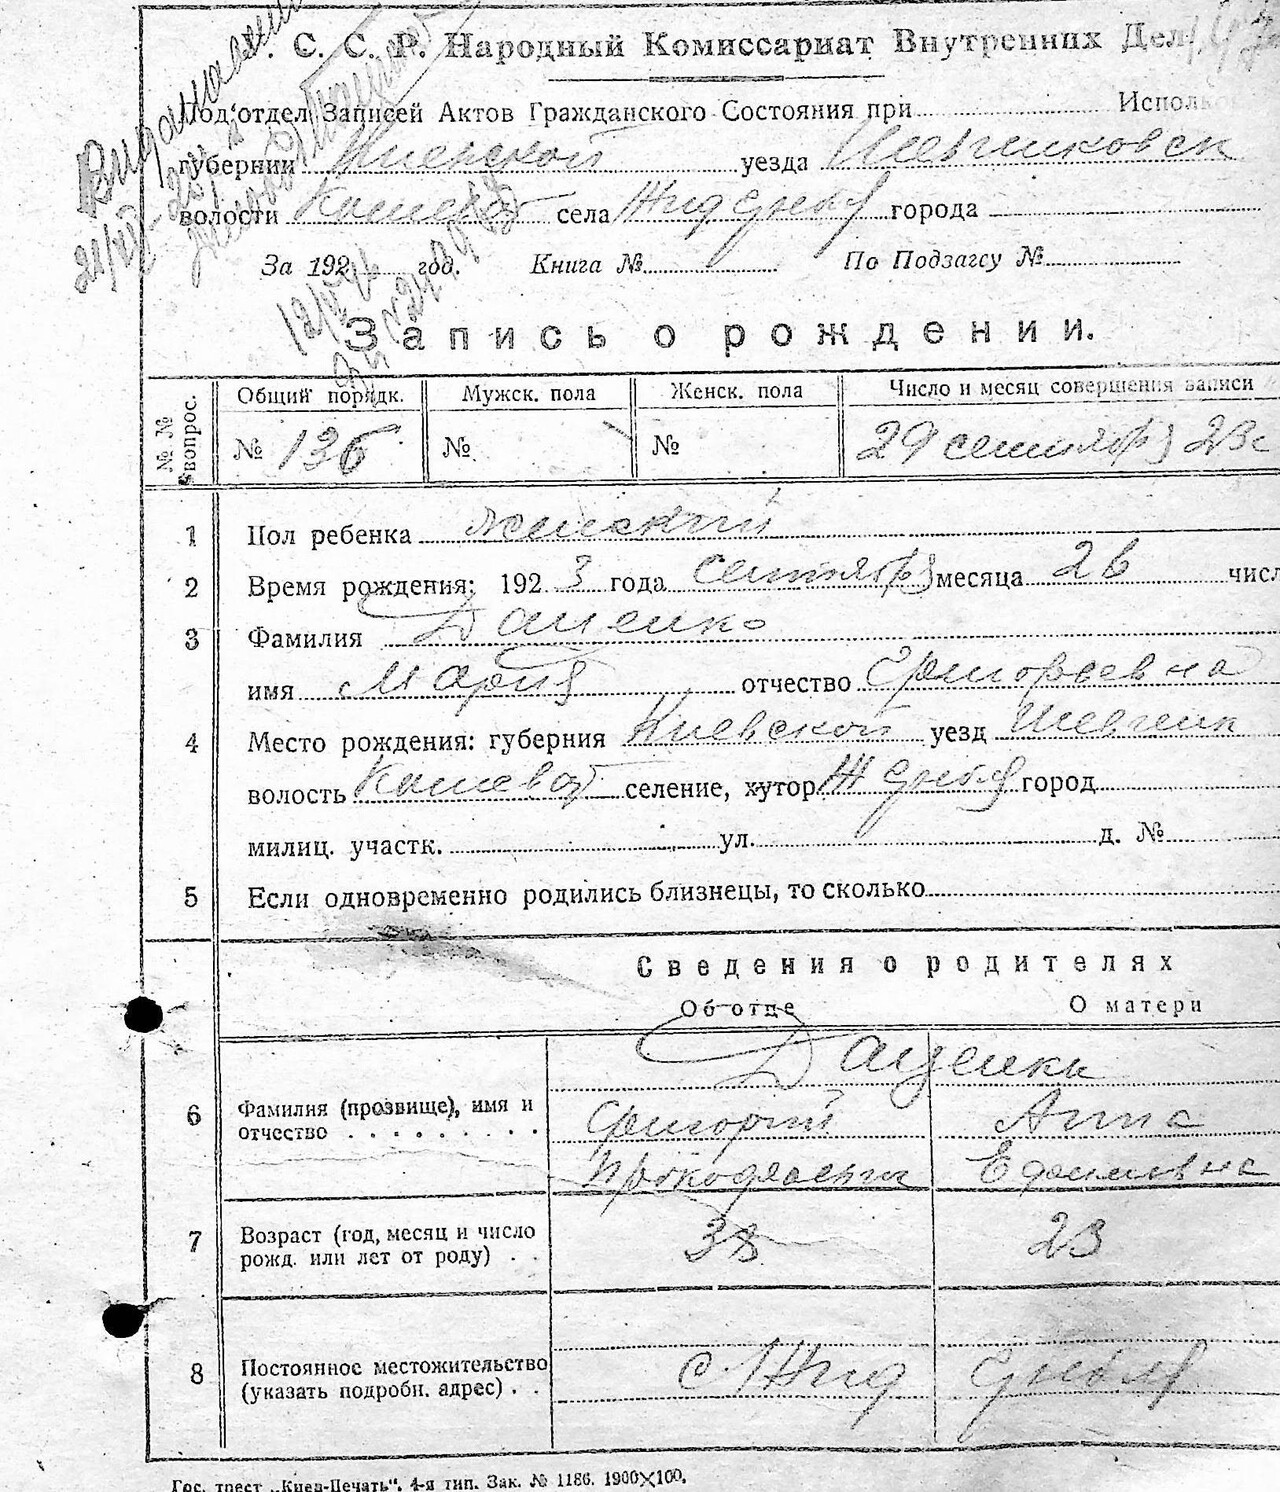 С. С. Р. Народный Комиссариат Внутренних Дел
Под'отдел Записей Актов Гражданского Состояния при
губернии Киевской уезда
волости села города
За 192 год. Книга № По Подзагсу №
Запись о рождении.
№ № вопрос. Общий порядк. Мужск. пола Женск. пола Число и месяц совершения записи
№ 136 № № 29 сентября 23г
1 Пол ребенка женский
2 Время рождения: 1923 года сентября месяца 26 числ
3 Фамилия Даценко
имя Мария отчество Григорьевна
4 Место рождения: губерния Киевской уезд Шевченк
волость Кошеват селение, хутор город
милиц. участк. ул. д. №
5 Если одновременно родились близнецы, то сколько
Сведения о родителях
Об отце О матери
Даценки
6 Фамилия (прозвище), имя и Григорий Анна
отчество Прокофьевич Ефимовна
7 Возраст (год, месяц и число 23
рожд. или лет от роду)
8 Постоянное местожительство
(указать подробн. адрес)
Гос. трест „Киев-Печать“. 4-я тип. Зак. № 1186. 1900×100.